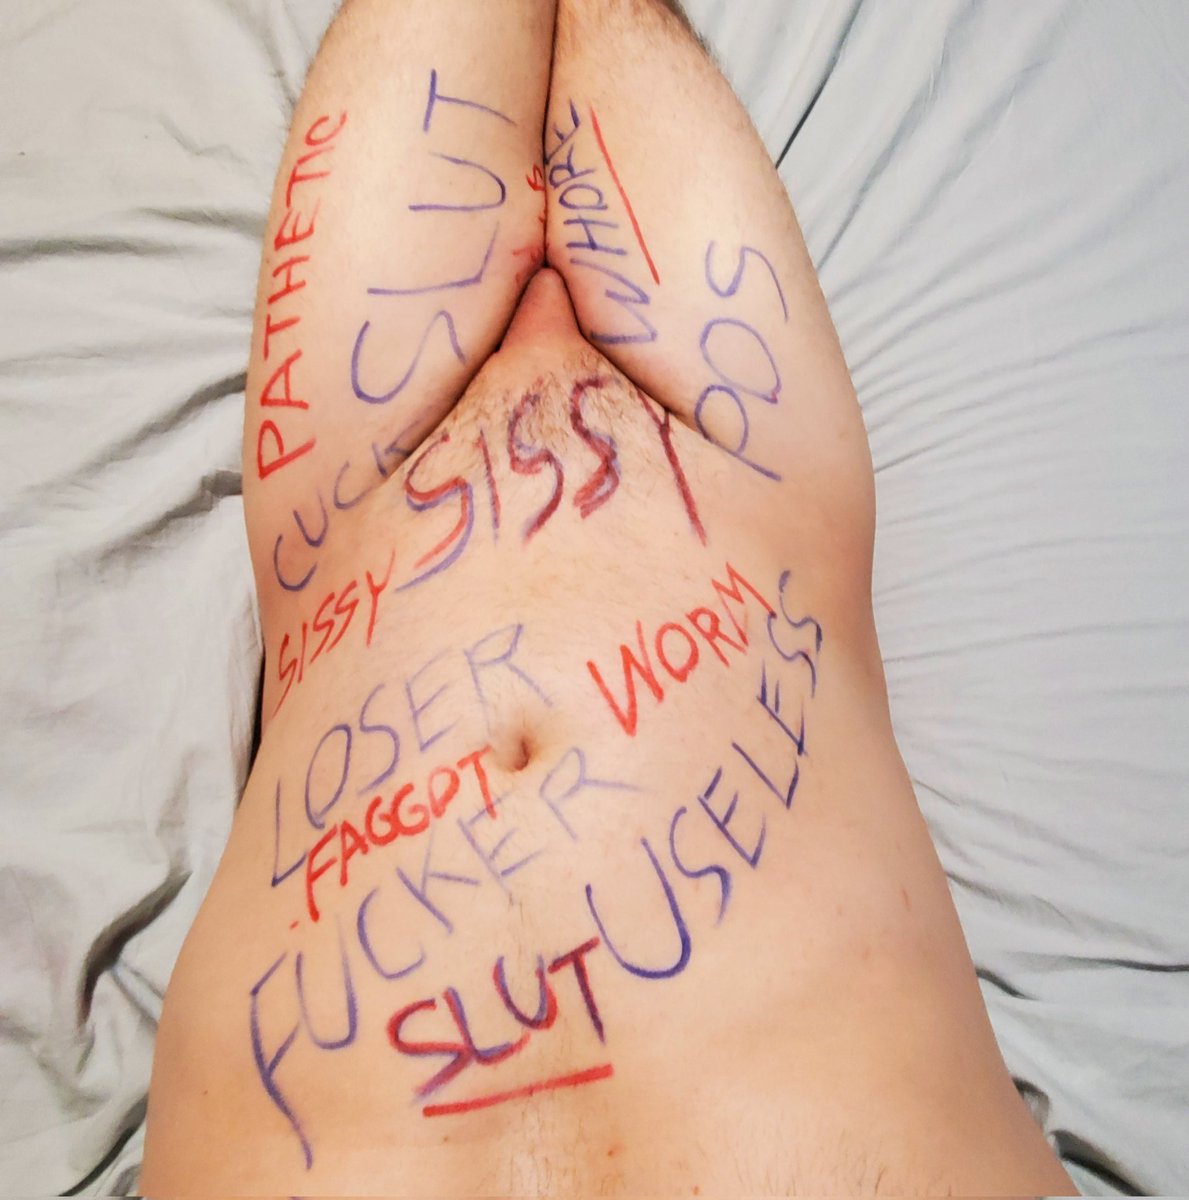 PATHETIC
SLUT
WHORE
POS
CUCK
SISSY
SISSY
LOSER
WORM
FAGGOT
USELESS
FUCKER
SLUT